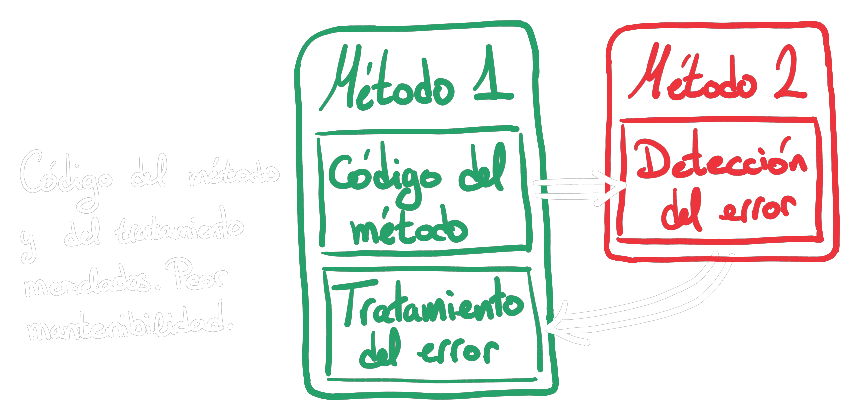 Código del método
y del tratamiento
mezclados. Peor
mantenibilidad.
Método 1
Código del
método
Tratamiento
del error
Método 2
Detección
del error